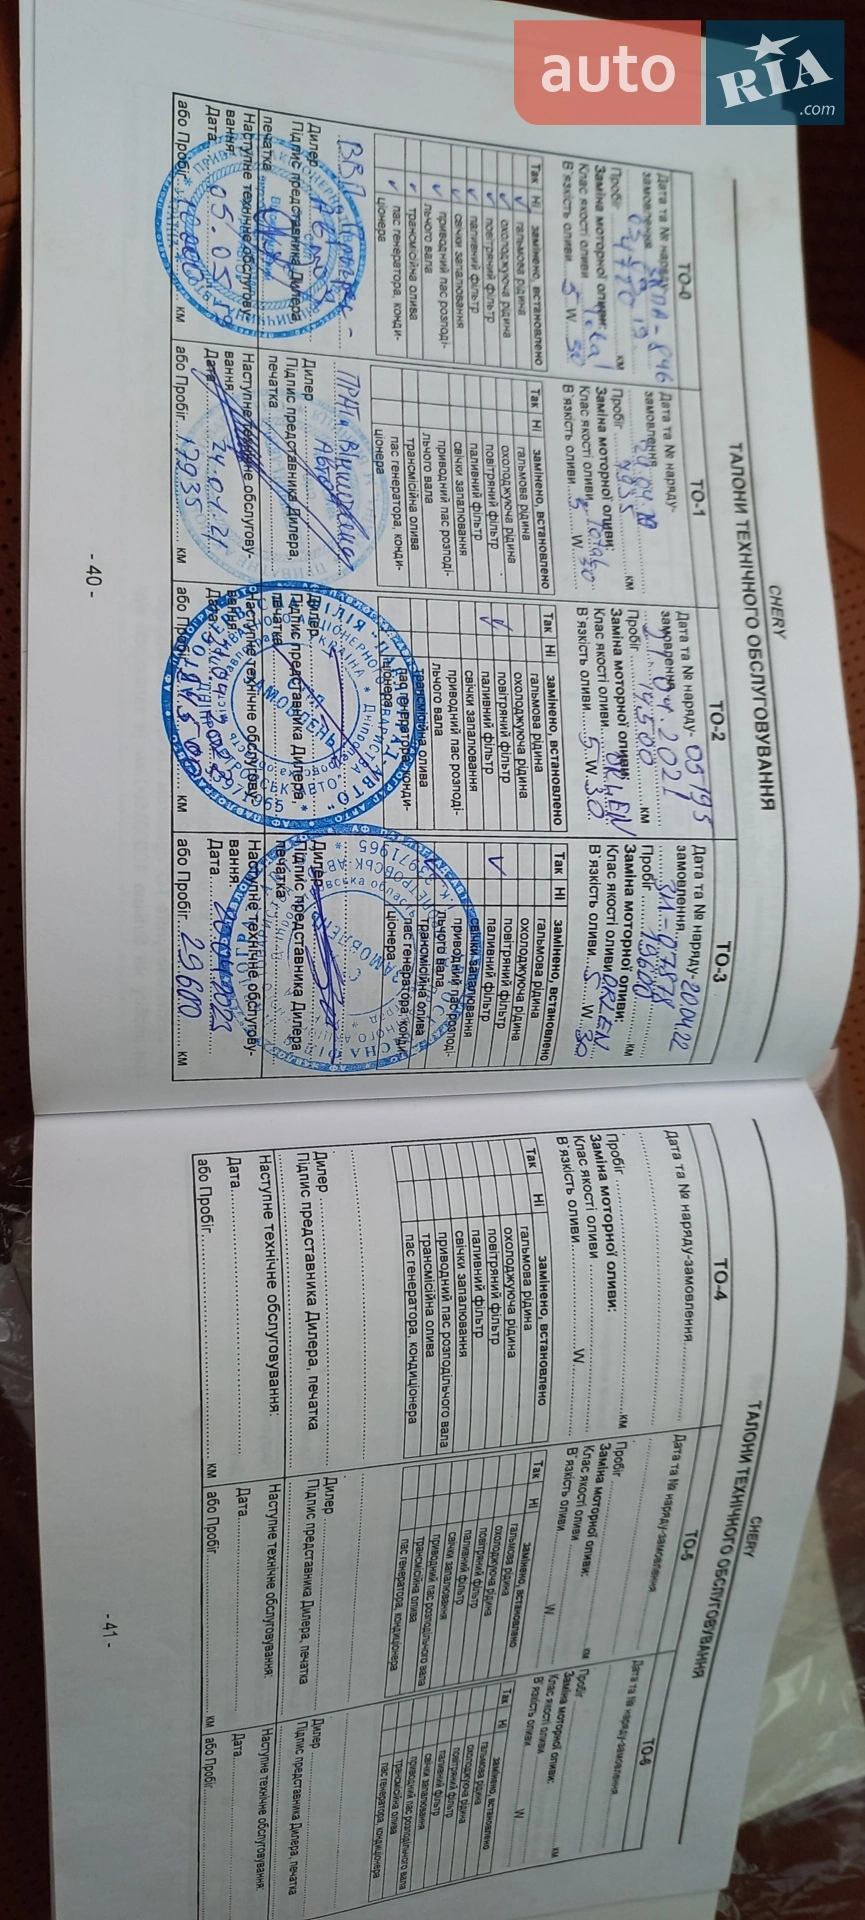 auto
RIA
.com
CHERY
ТАЛОНИ ТЕХНІЧНОГО ОБСЛУГОВУВАННЯ
ТО-0
Дата та № наряду-
замовлення
Пробіг 04770 км
Заміна моторної оливи:
Клас якості оливи
В`язкість оливи 5 W 30
Так Ні замінено, встановлено
гальмова рідина
охолоджуюча рідина
повітряний фільтр
паливний фільтр
свічки запалювання
приводний пас розподі-
льчого вала
трансмісійна олива
пас генератора, конди-
ціонера
Дилер
Підпис представника Дилера,
печатка
Наступне технічне обслугову-
вання:
Дата
або Пробіг км
ТО-1
Дата та № наряду-
замовлення
Пробіг 7935 км
Заміна моторної оливи:
Клас якості оливи Total
В`язкість оливи 5 W 30
Так Ні замінено, встановлено
гальмова рідина
охолоджуюча рідина
повітряний фільтр
паливний фільтр
свічки запалювання
приводний пас розподі-
льчого вала
трансмісійна олива
пас генератора, конди-
ціонера
Дилер
Підпис представника Дилера,
печатка
Наступне технічне обслугову-
вання:
Дата 24.04.21
або Пробіг 17935 км
ТО-2
Дата та № наряду- 05195
замовлення 21.04.2021
Пробіг 14500 км
Заміна моторної оливи:
Клас якості оливи ORLEN
В`язкість оливи 5 W 30
Так Ні замінено, встановлено
гальмова рідина
охолоджуюча рідина
повітряний фільтр
паливний фільтр
свічки запалювання
приводний пас розподі-
льчого вала
трансмісійна олива
пас генератора, конди-
ціонера
Дилер
Підпис представника Дилера,
печатка
Наступне технічне обслугову-
вання:
Дата
або Пробіг км
ТО-3
Дата та № наряду- 20.04.22
замовлення
Пробіг 19600 км
Заміна моторної оливи:
Клас якості оливи ORLEN
В`язкість оливи 5 W 30
Так Ні замінено, встановлено
гальмова рідина
охолоджуюча рідина
повітряний фільтр
паливний фільтр
свічки запалювання
приводний пас розподі-
льчого вала
трансмісійна олива
пас генератора, конди-
ціонера
Дилер
Підпис представника Дилера,
печатка
Наступне технічне обслугову-
вання:
Дата 20.04.2023
або Пробіг 29600 км
- 40 -
CHERY
ТАЛОНИ ТЕХНІЧНОГО ОБСЛУГОВУВАННЯ
ТО-4
Дата та № наряду-замовлення
Пробіг км
Заміна моторної оливи:
Клас якості оливи
В`язкість оливи W
Так Ні замінено, встановлено
гальмова рідина
охолоджуюча рідина
повітряний фільтр
паливний фільтр
свічки запалювання
приводний пас розподільчого вала
трансмісійна олива
пас генератора, кондиціонера
Дилер
Підпис представника Дилера, печатка
Наступне технічне обслуговування:
Дата
або Пробіг км
ТО-5
Дата та № наряду-замовлення
Пробіг км
Заміна моторної оливи:
Клас якості оливи
В`язкість оливи W
Так Ні замінено, встановлено
гальмова рідина
охолоджуюча рідина
повітряний фільтр
паливний фільтр
свічки запалювання
приводний пас розподільчого вала
трансмісійна олива
пас генератора, кондиціонера
Дилер
Підпис представника Дилера, печатка
Наступне технічне обслуговування:
Дата
або Пробіг км
ТО-6
Дата та № наряду-замовлення
Пробіг км
Заміна моторної оливи:
Клас якості оливи
В`язкість оливи W
Так Ні замінено, встановлено
гальмова рідина
охолоджуюча рідина
повітряний фільтр
паливний фільтр
свічки запалювання
приводний пас розподільчого вала
трансмісійна олива
пас генератора, кондиціонера
Дилер
Підпис представника Дилера, печатка
Наступне технічне обслуговування:
Дата
або Пробіг
- 41 -